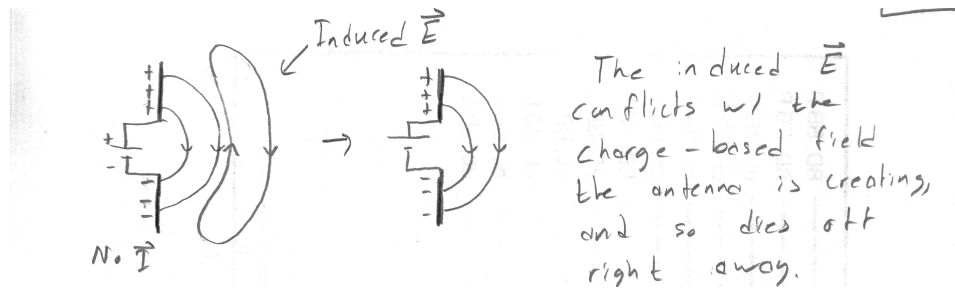 Induced E⃗
+
+
+
+
-
-
-
-
No I⃗
→
+
+
+
-
-
-
The induced E⃗
conflicts w/ the
charge-based field
the antenna is creating,
and so dies off
right away.